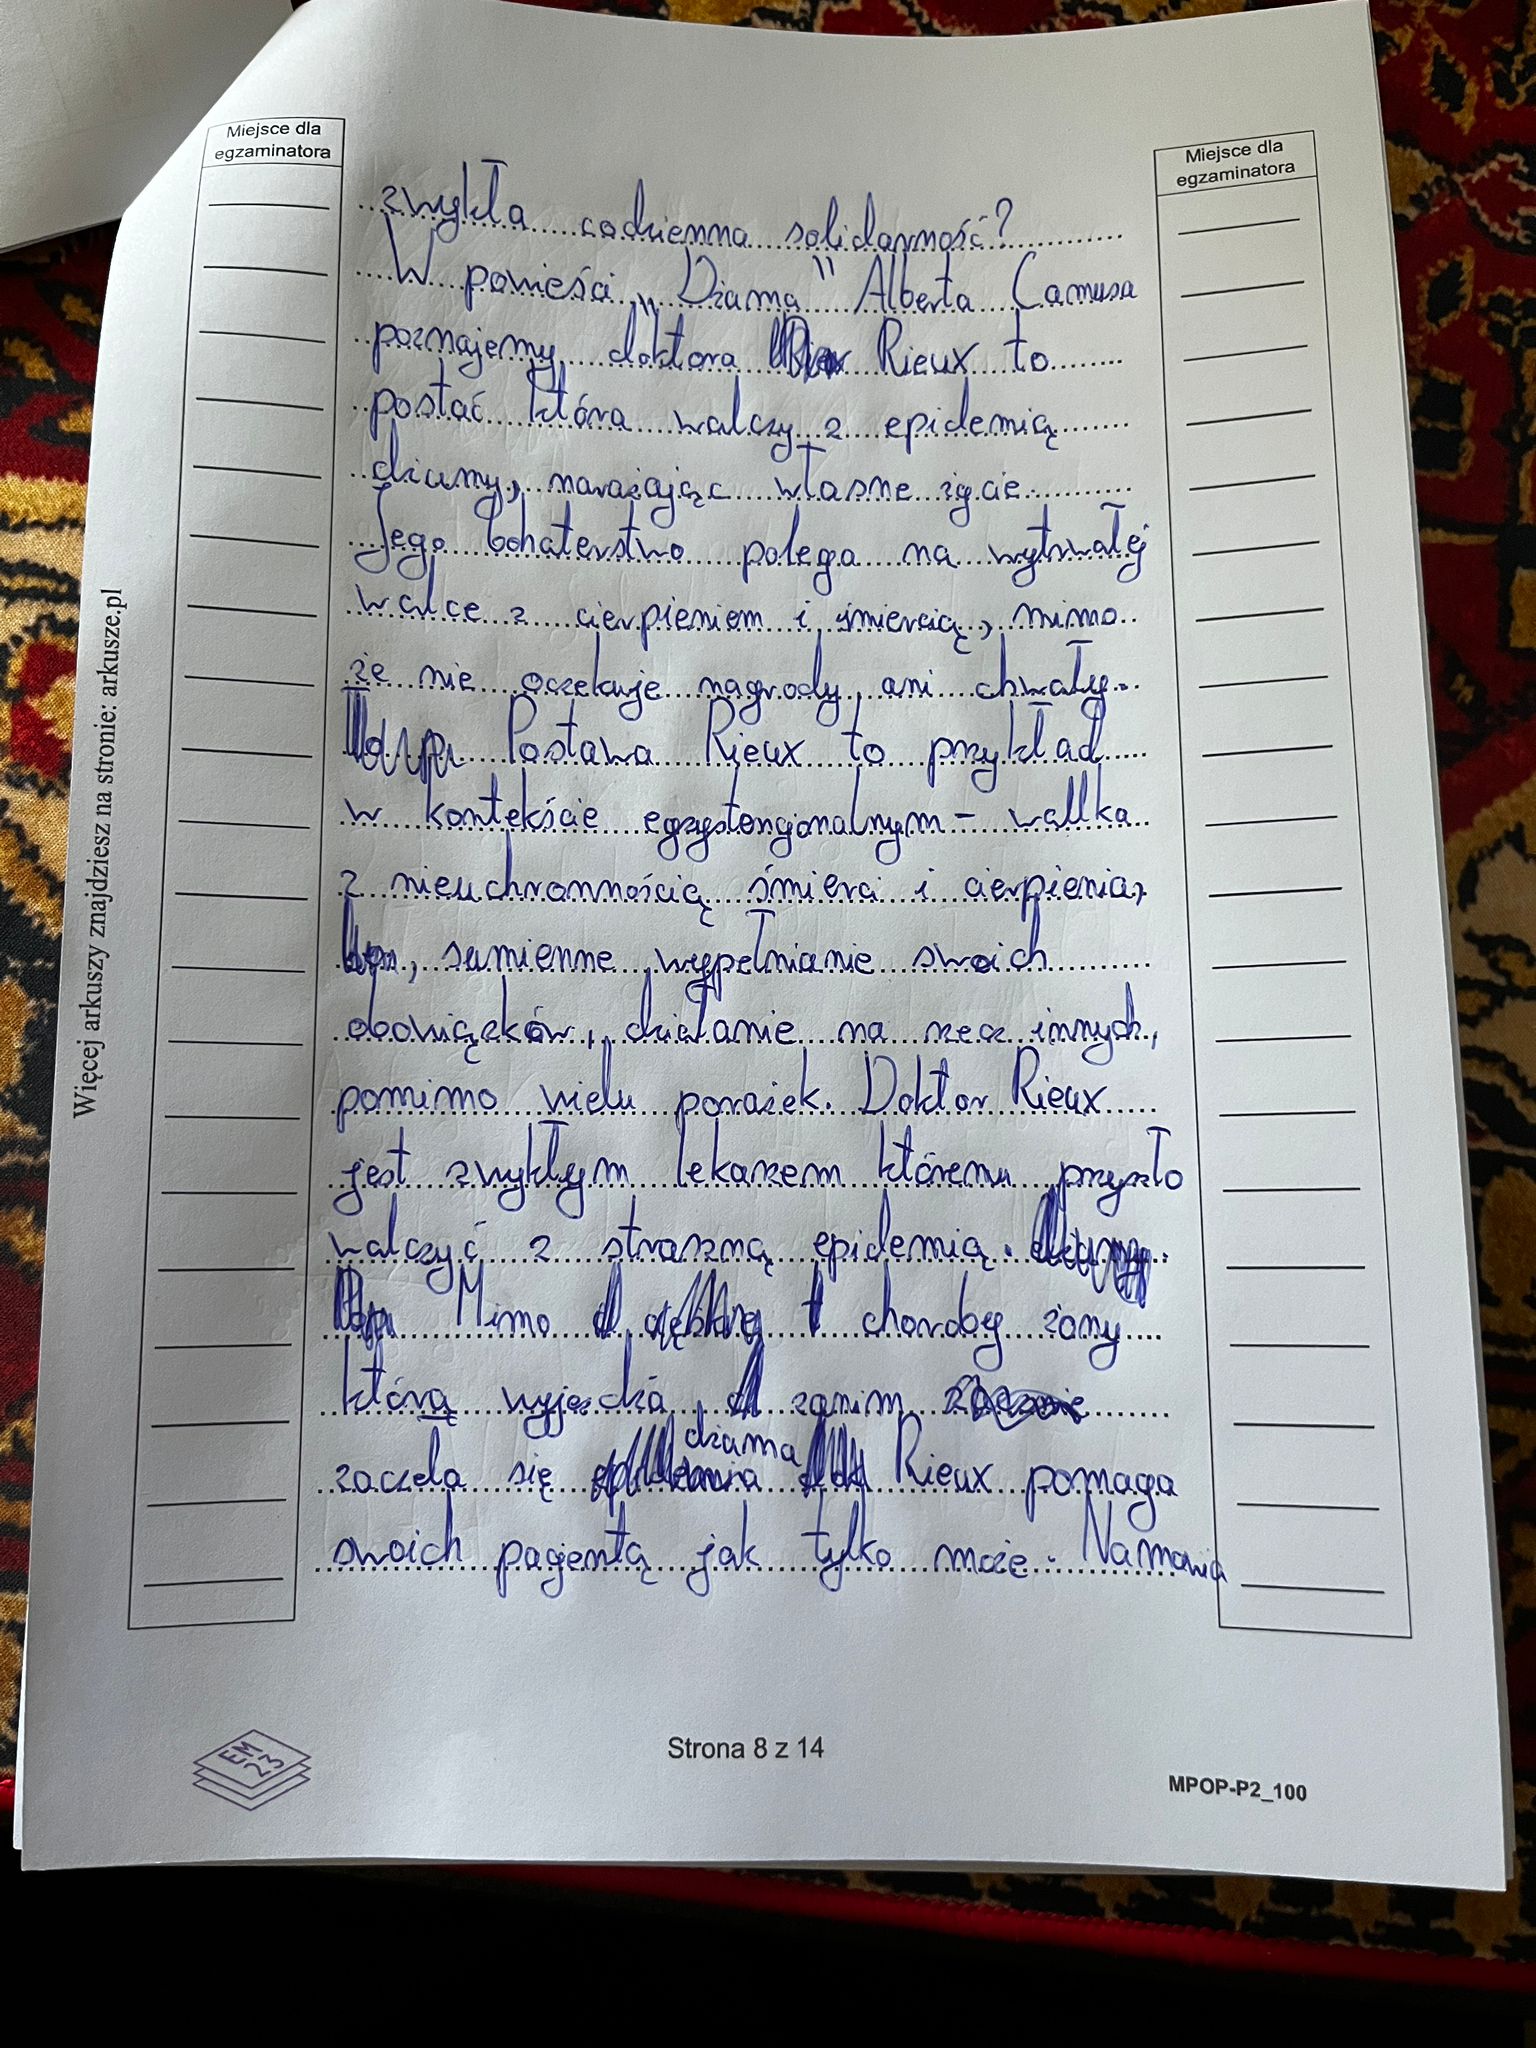 Miejsce dla
egzaminatora
Miejsce dla
egzaminatora
zwykła codzienna solidarność?
W powieści „Dżuma" Alberta Camusa
poznajemy doktora Rieux to
postać która walczy z epidemią
dżumy, narażając własne życie.
Jego bohaterstwo polega na wytrwałej
walce z cierpieniem i śmiercią, mimo
że nie oczekuje nagrody ani chwały.
Postawa Rieux to przykład
w kontekście egzystencjonalnym - walka
z nieuchronnością śmierci i cierpienia,
, sumienne wypełnianie swoich
obowiązków, działanie na rzecz innych,
pomimo wielu porażek. Doktor Rieux
jest zwykłym lekarzem któremu przyszło
walczyć z straszną epidemią.
Mimo choroby żony
którą wyjeżdża zanim
dżuma
zaczeła się Rieux pomaga
swoich pacjentą jak tylko może. Namawia
Więcej arkuszy znajdziesz na stronie: arkusze.pl
EM
23
Strona 8 z 14
MPOP-P2_100